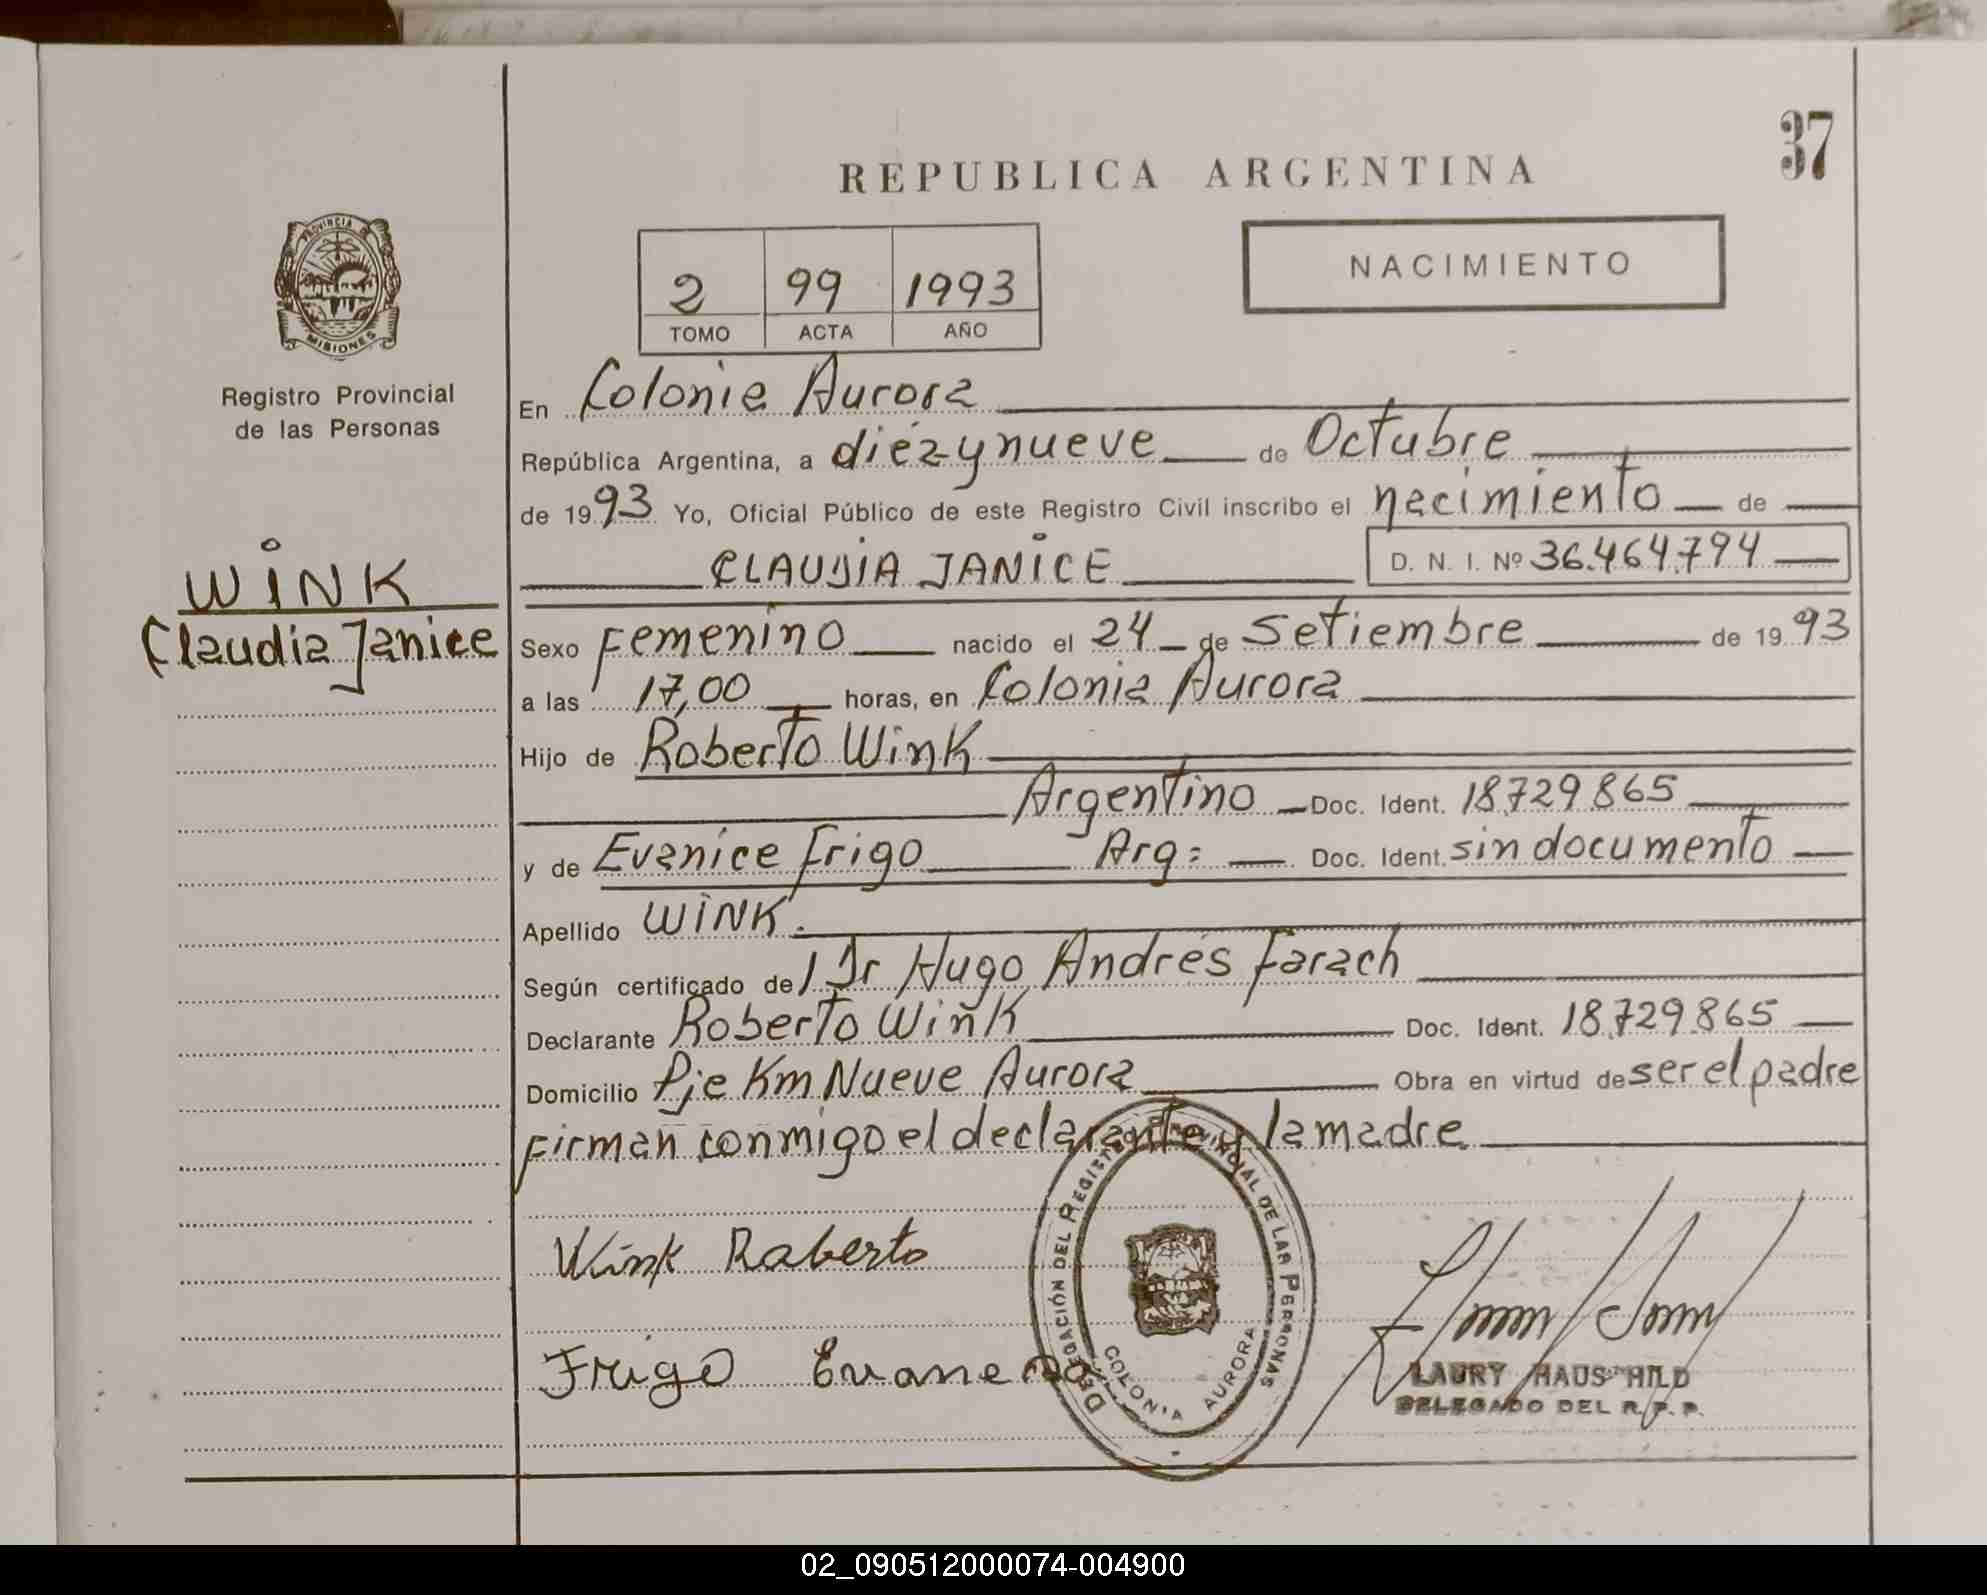 37
REPUBLICA ARGENTINA
PROVINCIA DE
MISIONES
Registro Provincial
de las Personas
2 99 1993
TOMO ACTA AÑO
NACIMIENTO
En Colonia Aurora
República Argentina, a diez y nueve de Octubre
de 1993 Yo, Oficial Público de este Registro Civil inscribo el nacimiento de
CLAUDIA JANICE D. N. I. Nº 36.464.794
WINK
Claudia Janice
Sexo Femenino nacido el 24 de Setiembre de 1993
a las 17,00 horas, en Colonia Aurora
Hijo de Roberto Wink
Argentino Doc. Ident. 18.729.865
y de Evanice Frigo Arg: Doc. Ident. sin documento
Apellido WINK.
Según certificado del Dr Hugo Andrés Farach
Declarante Roberto Wink Doc. Ident. 18.729.865
Domicilio Pje Km Nueve Aurora Obra en virtud de ser el padre
Firman conmigo el declarante y la madre
Wink Roberto
Frigo
DELEGACIÓN DEL REGISTRO PROVINCIAL DE LAS PERSONAS
COLONIA AURORA
LAURY HAUSCHILD
DELEGADO DEL R.P.P.
02_090512000074-004900